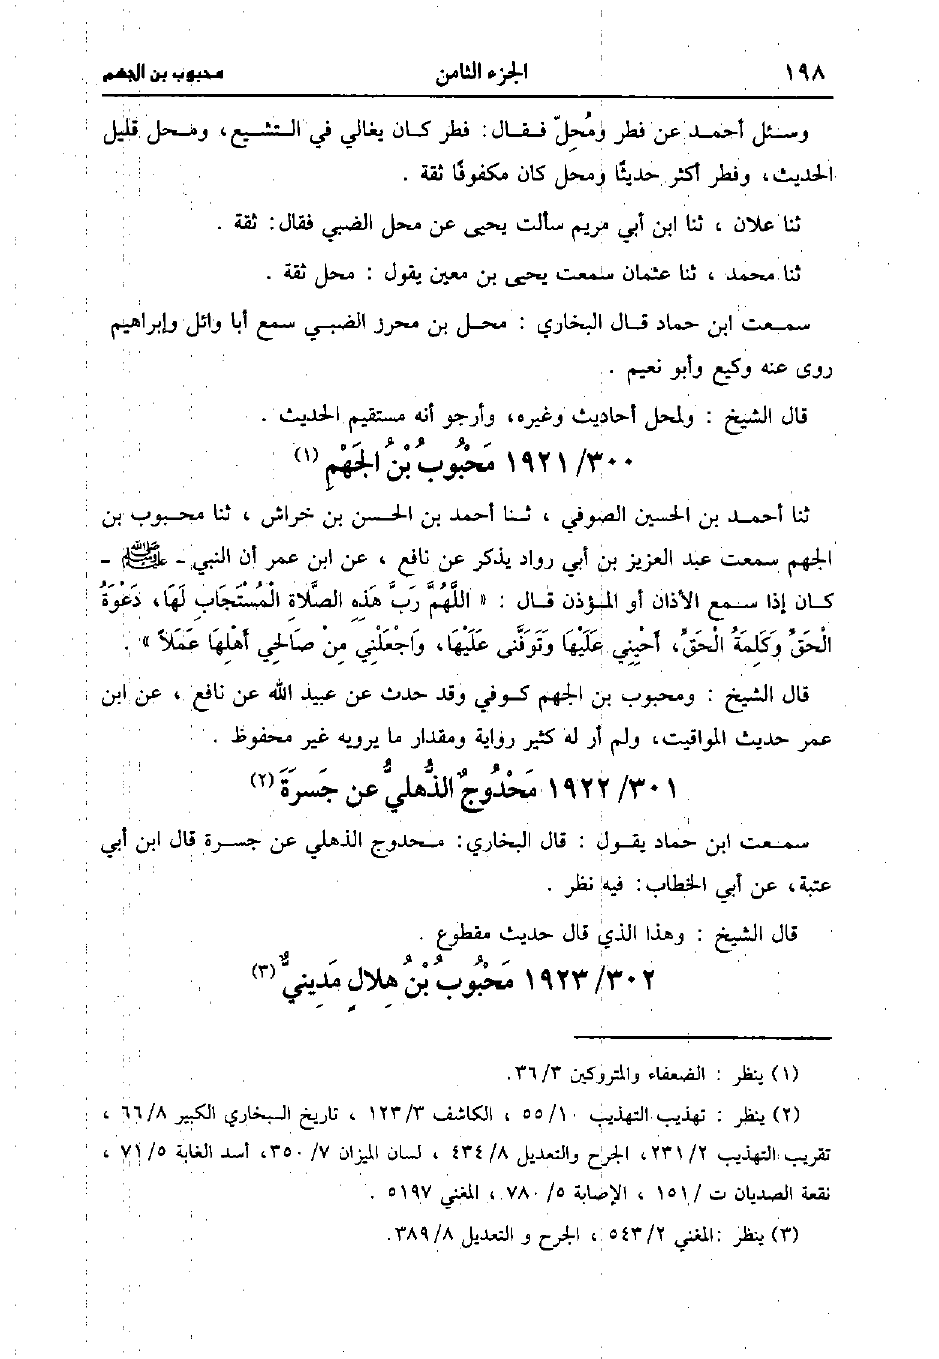 ١٩٨ الجزء الثامن محبوب بن الجهم
وسئل أحمد عن فطر ومُحِلّ فقال: فطر كان يغالي في التشيع، ومحل قليل
الحديث، وفطر أكثر حديثًا ومحل كان مكفوفًا ثقة .
ثنا علان ، ثنا ابن أبي مريم سألت يحيى عن محل الضبي فقال: ثقة .
ثنا محمد ، ثنا عثمان سمعت يحيى بن معين يقول : محل ثقة .
سمعت ابن حماد قال البخاري : محل بن محرز الضبي سمع أبا وائل وإبراهيم
روى عنه وكيع وأبو نعيم .
قال الشيخ : ولمحل أحاديث وغيره، وأرجو أنه مستقيم الحديث .
١٩٢١/٣٠٠ مَحْبُوبُ بْنُ الجَهْمِ (١)
ثنا أحمد بن الحسين الصوفي ، ثنا أحمد بن الحسن بن خراش ، ثنا محبوب بن
الجهم سمعت عبد العزيز بن أبي رواد يذكر عن نافع ، عن ابن عمر أن النبي - ﷺ -
كان إذا سمع الأذان أو المؤذن قال : « اللَّهُمَّ رَبَّ هَذِهِ الصَّلَاةِ الْمُسْتَجَابِ لَهَا، دَعْوَةُ
الْحَقِّ وَكَلِمَةُ الْحَقِّ، أَحْيِنِي عَلَيْهَا وَتَوَفَّنِي عَلَيْهَا، وَاجْعَلْنِي مِنْ صَالِحِي أَهْلِهَا عَمَلاً» .
قال الشيخ : ومحبوب بن الجهم كوفي وقد حدث عن عبيد الله عن نافع ، عن ابن
عمر حديث المواقيت، ولم أر له كثير رواية ومقدار ما يرويه غير محفوظ .
١٩٢٢/٣٠١ مَحْدُوجٌ الذُّهليُّ عن جَسرَةَ (٢)
سمعت ابن حماد يقول : قال البخاري: محدوج الذهلي عن جسرة قال ابن أبي
عتبة، عن أبي الخطاب: فيه نظر .
قال الشيخ : وهذا الذي قال حديث مقطوع .
١٩٢٣/٣٠٢ مَحْبُوبُ بْنُ هِلالٍ مَدِينيٌّ (٣)
(١) ينظر : الضعفاء والمتروكين ٣٦/٣.
(٢) ينظر : تهذيب التهذيب ٥٥/١٠ ، الكاشف ١٢٣/٣ ، تاريخ البخاري الكبير ٦٦/٨ ،
تقريب التهذيب ٢٣١/٢، الجرح والتعديل ٤٣٤/٨ ، لسان الميزان ٣٥٠/٧، أسد الغابة ٧١/٥ ،
نقعة الصديان ت /١٥١ ، الإصابة ٧٨٠/٥ ، المغني ٥١٩٧ .
(٣) ينظر :المغني ٥٤٣/٢ ، الجرح و التعديل ٣٨٩/٨.